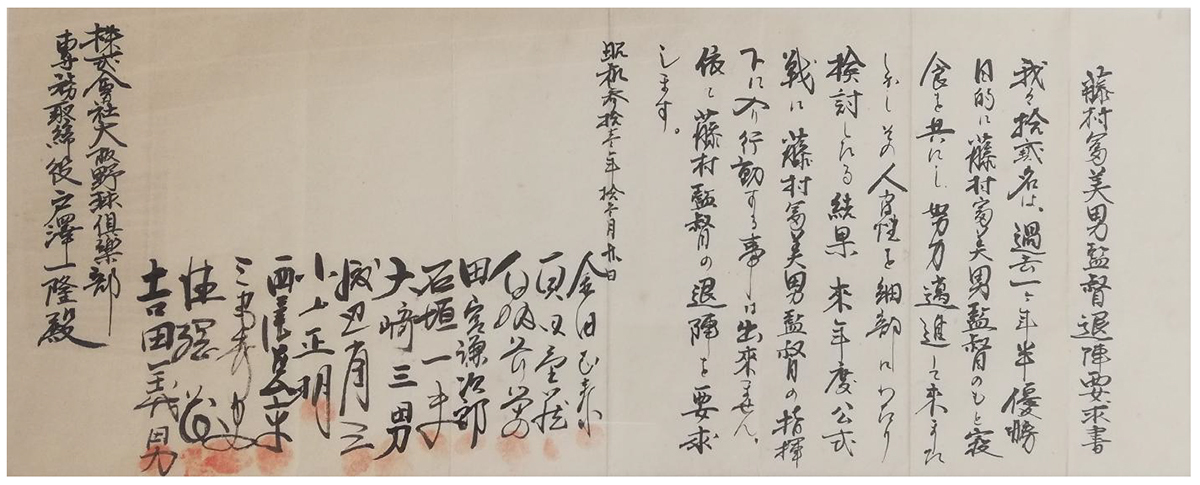 藤村冨美男監督退陣要求書
我々拾貳名は、過去一ヶ年半優勝
目的に藤村冨美男監督のもと寝
食を共にし努力邁進して来ました
しかしその人間性を細部にわたり
検討したる結果来年度公式
戦に藤村冨美男監督の指揮
下に入り行動する事は出来ません。
依て藤村監督の退陣を要求
します。
昭和参拾壱年拾壱月
金田正泰
真田重蔵
白坂長栄
田宮謙次郎
石垣一夫
大崎三男
渡辺省三
小山正明
西村
三宅秀史
吉田義男
株式会社大阪野球倶楽部
専務取締役戸澤一隆殿